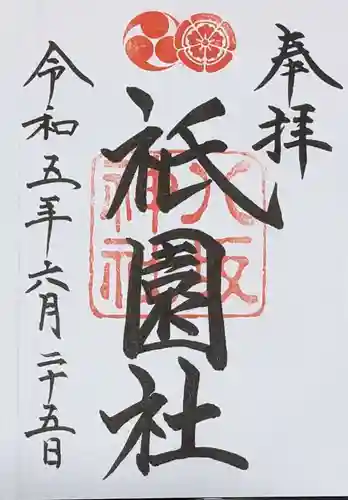 奉拝
八坂
神社
祇園社
令和五年六月二十五日